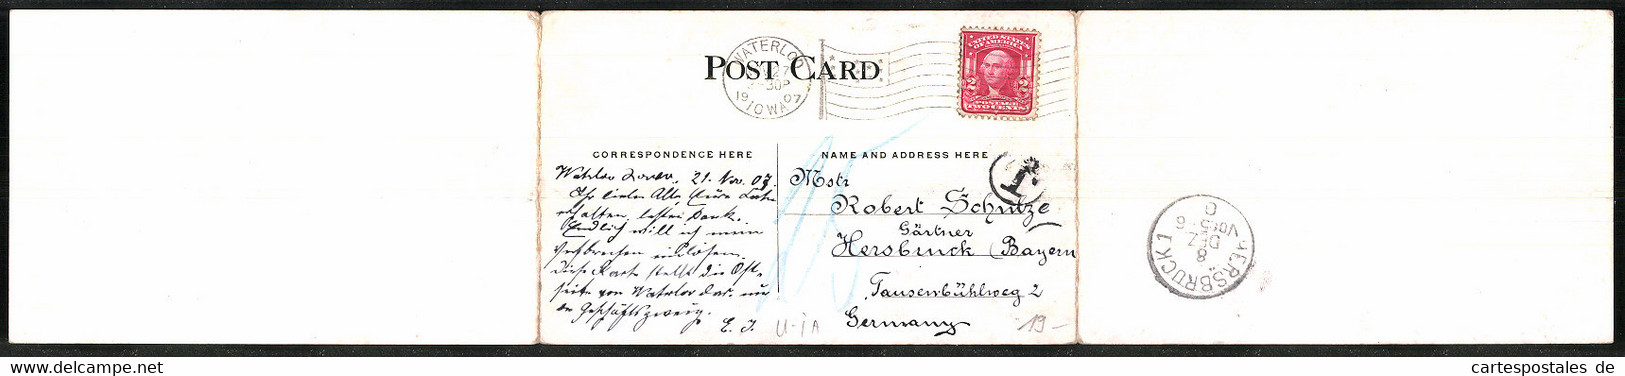 POST CARD
WATERLOO
27
30P
19 07
IOWA
UNITED STATES
OF AMERICA
2 2
POSTAGE
TWO CENTS
CORRESPONDENCE HERE
NAME AND ADDRESS HERE
21. Nov. 07.
Ihr lieben Alle, Eure Karte
erhalten, besten Dank.
Endlich will ich mein
Versprechen einlösen.
Diese Karte stellt die Ost-
seite von Waterloo dar. nur
Geschäftszweig.
E. J.
Mstr
Robert Schütze
Gärtner
Hersbruck (Bayern
Tausenbühlweg 2
Germany
T.
15
U-iA
19-
HERSBRUCK 1
8
DEZ
V05-6
C
cartespostales de